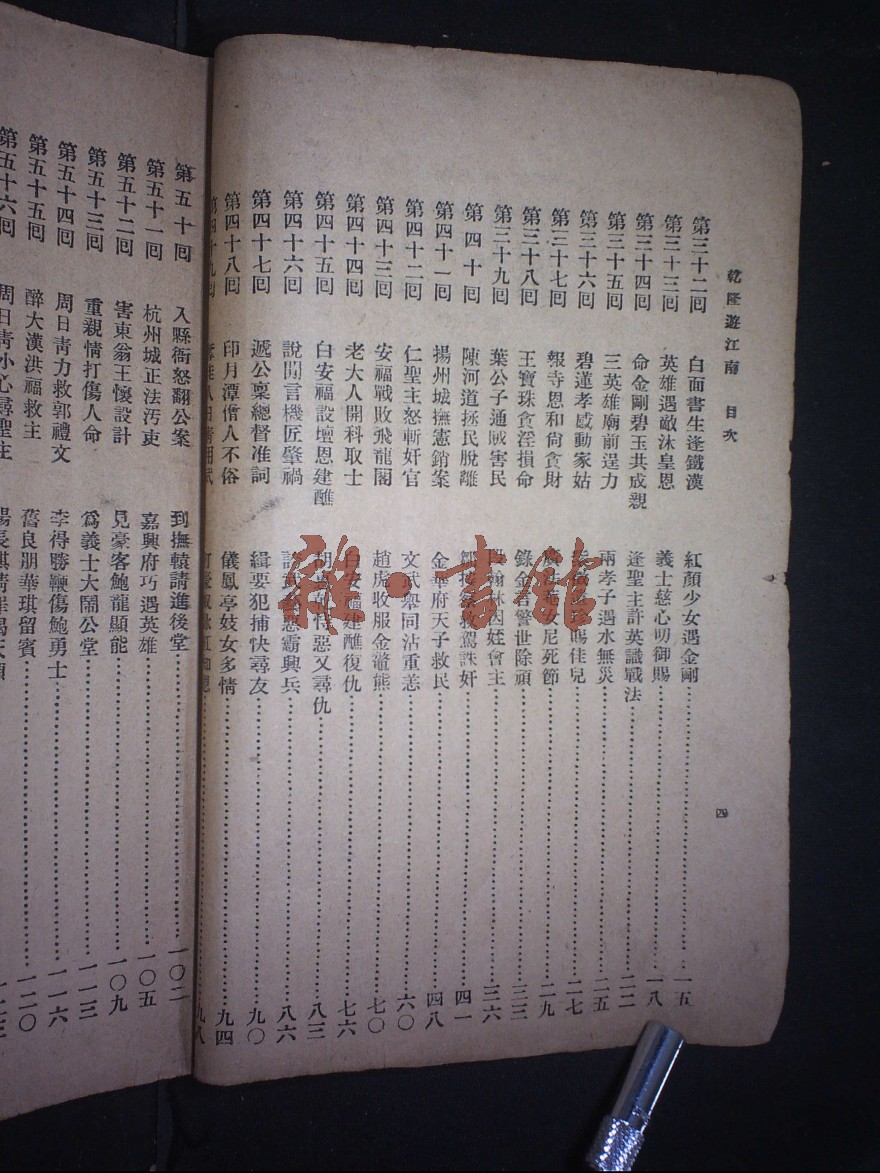 乾隆遊江南 目次
四
第三十二囘 白面書生逢鐵漢 紅顏少女遇金剛 一五
第三十三囘 英雄遇敵沐皇恩 義士慈心叨御賜 一八
第三十四囘 命金剛碧玉共成親 逢聖主許英議戰法 二二
第三十五囘 三英雄廟前逞力 兩孝子遇水無災 二五
第三十六囘 碧蓮孝感動家姑 賜佳兒 二七
第三十七囘 報寺恩和尙貪財 女尼死節 二九
第三十八囘 王寶珠貪淫損命 錄金言警世除頑 三三
第三十九囘 葉公子通賊害民 翰林因姪會主 三六
第四十囘 陳河道拯民脫離 救駕誅奸 四一
第四十一囘 揚州城撫憲銷案 金華府天子救民 四八
第四十二囘 仁聖主怒斬奸官 文武舉同沾重恙 六〇
第四十三囘 安福戰敗飛龍閣 趙虎收服金鼇熊 七〇
第四十四囘 老大人開科取士 白安福建醮復仇 七六
第四十五囘 白安福設壇恩建醮 胡惠乾恃惡又尋仇 八三
第四十六囘 說閒言機匠肇禍 惡霸興兵 八六
第四十七囘 遞公稟總督准詞 緝要犯捕快尋友 九〇
第四十八囘 印月潭僧人不俗 儀鳳亭妓女多情 九四
第四十九囘 九八
第五十囘 入縣衙怒翻公案 到撫轅請進後堂 一〇二
第五十一囘 杭州城正法汚吏 嘉興府巧遇英雄 一〇五
第五十二囘 害東翁王懷設計 見豪客鮑龍顯能 一〇九
第五十三囘 重親情打傷人命 爲義士大鬧公堂 一一三
第五十四囘 周日靑力救郭禮文 李得勝鞭傷鮑勇士 一一六
第五十五囘 醉大漢洪福救主 舊良朋華琪留賓 一二〇
第五十六囘 周日靑小心尋聖主
雜·書館